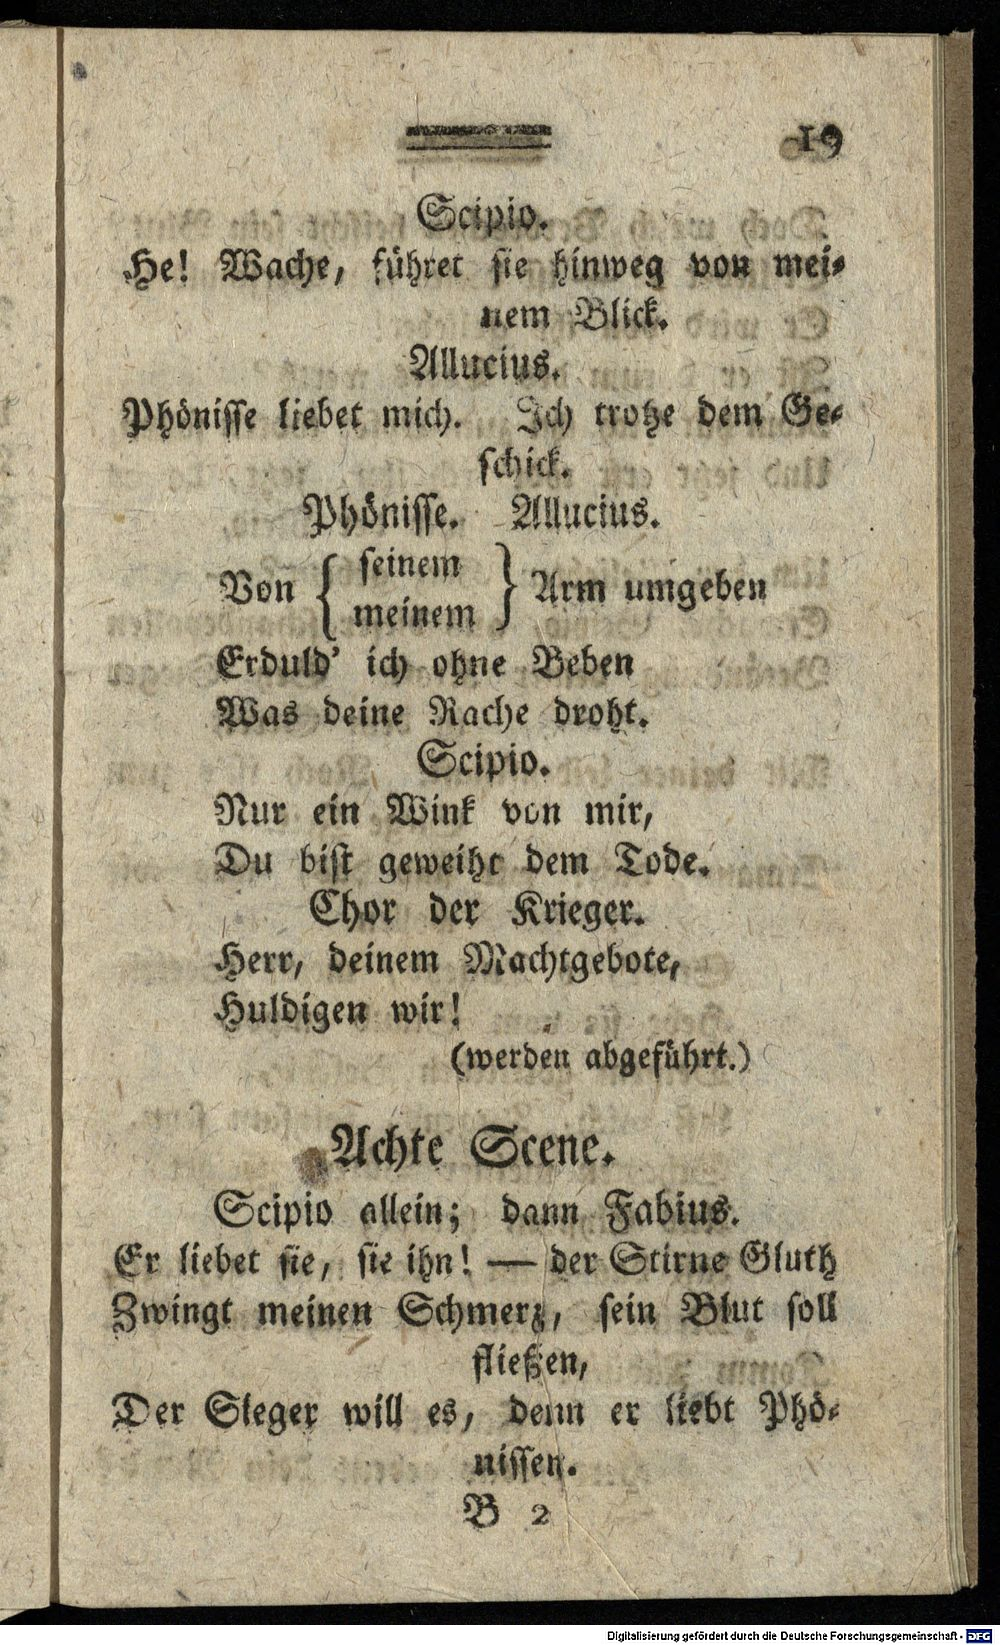 19
Scipio.
He! Wache, führet sie hinweg von mei-
nem Blick.
Allucius.
Phönisse liebet mich. Ich trotze dem Ge-
schick.
Phönisse. Allucius.
Von { seinem
meinem } Arm umgeben
Erduld' ich ohne Beben
Was deine Rache droht.
Scipio.
Nur ein Wink von mir,
Du bist geweiht dem Tode.
Chor der Krieger.
Herr, deinem Machtgebote,
Huldigen wir!
(werden abgeführt.)
Achte Scene.
Scipio allein; dann Fabius.
Er liebet sie, sie ihn! — der Stirne Gluth
Zwingt meinen Schmerz, sein Blut soll
fließen,
Der Sieger will es, denn er liebt Phö-
nissen.
B 2
Digitalisierung gefördert durch die Deutsche Forschungsgemeinschaft - DFG